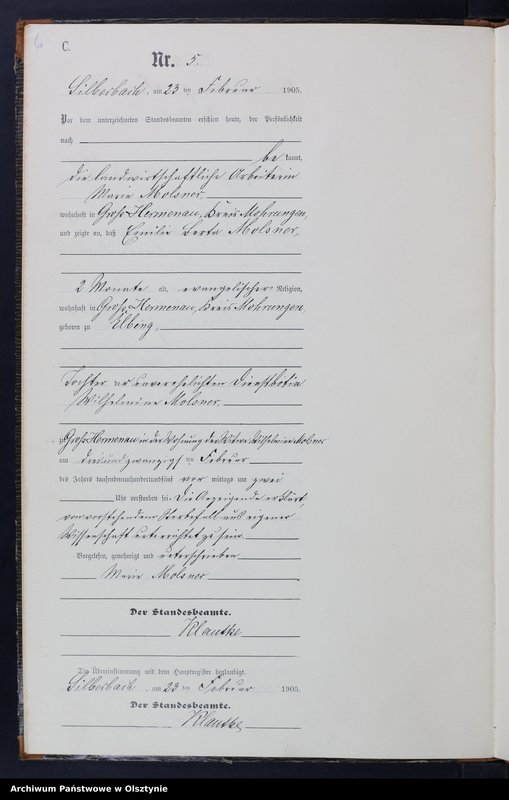 6
C.
Nr. 5.
Silberbach, am 23 ten Februar 1905.
Vor dem unterzeichneten Standesbeamten erschien heute, der Persönlichkeit
nach
be kannt,
die landwirtschaftliche Arbeiterin
Marie Molsner,
wohnhaft in Groß Hermenau, Kreis Mohrungen,
und zeigte an, daß Emilie Berta Molsner,
2 Monate alt, evangelischer Religion,
wohnhaft in Groß Hermenau, Kreis Mohrungen,
geboren zu Elbing,
Tochter der unverehelichten Dienstbotin
Wilhelmine Molsner,
zu Groß Hermenau in der Wohnung der Witwe Wilhelmine Molsner
am dreiundzwanzigsten Februar
des Jahres tausendneunhundertundfünf vor mittags um zwei
Uhr verstorben sei. Die Anzeigende erklärt,
von vorstehendem Sterbefall aus eigener
Wissenschaft unterrichtet zu sein.
Vorgelesen, genehmigt und unterschrieben
Marie Molsner
Der Standesbeamte.
Klautke
Die Übereinstimmung mit dem Hauptregister beglaubigt.
Silberbach, am 23 ten Februar 1905.
Der Standesbeamte.
Klautke
Archiwum Państwowe w Olsztynie